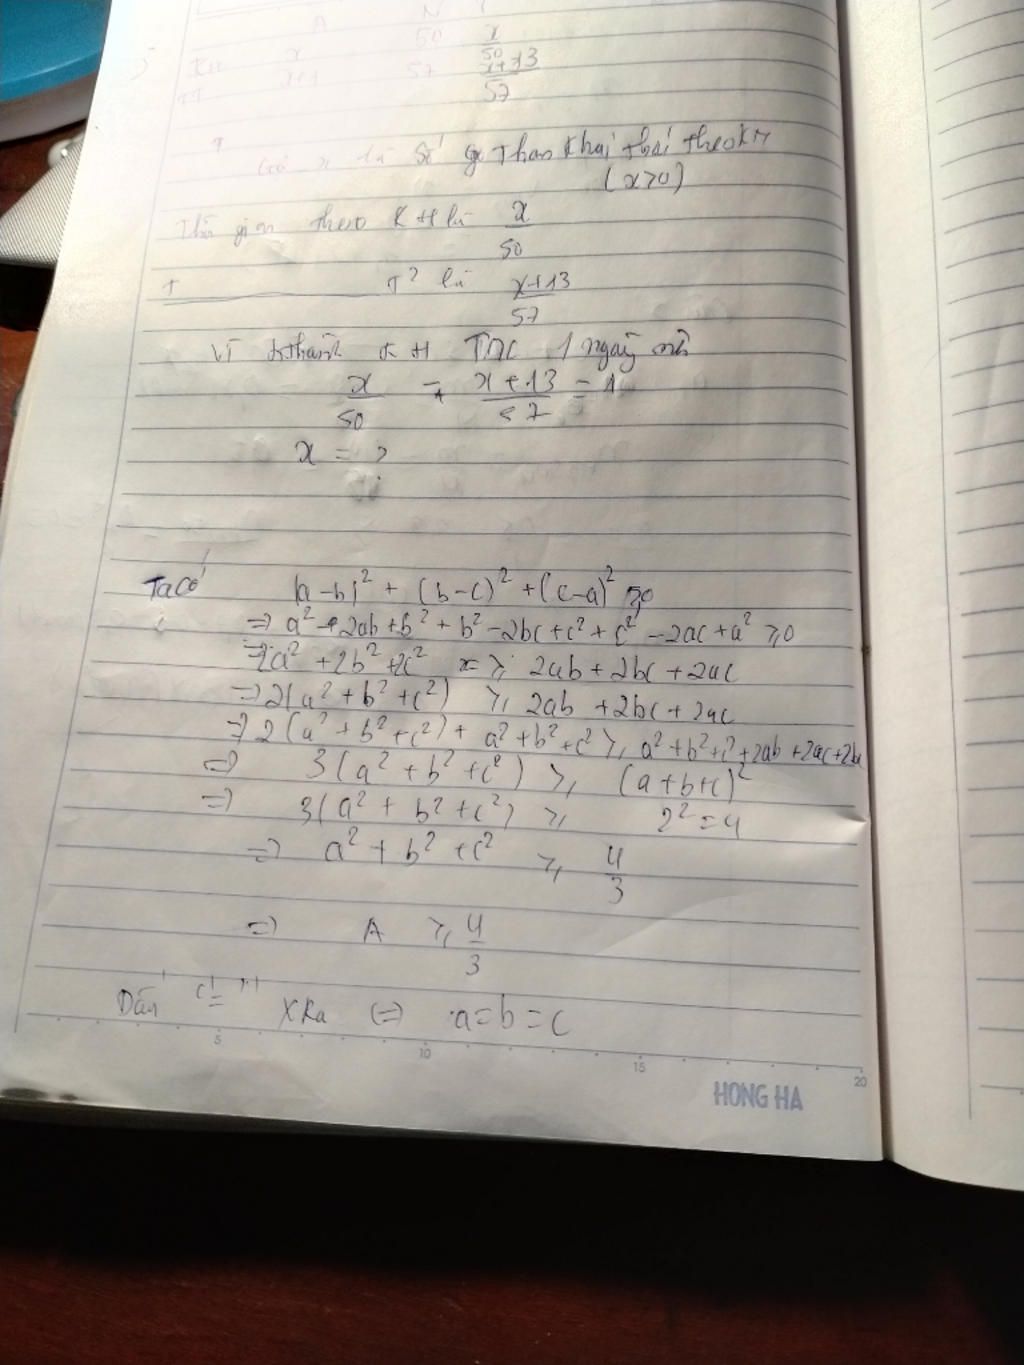 A N
KH x 50 x/50
TT x+1 57 x+13/57
Gọi x là Số Than Khai thái theo KH
(x>0)
Thời gian theo KH là x/50
T² là x+13/57
Vì thành KH 1 ngày nên
x/50 - x+13/57 = 1
x = ?
Ta có (a-b)² + (b-c)² + (c-a)² ≥0
=> a² - 2ab + b² + b² - 2bc + c² + c² - 2ac + a² ≥0
=> 2a² + 2b² + 2c² ≥ 2ab + 2bc + 2ac
=> 2(a² + b² + c²) ≥ 2ab + 2bc + 2ac
=> 2(a² + b² + c²) + a² + b² + c² ≥ a² + b² + c² + 2ab + 2ac + 2bc
=> 3(a² + b² + c²) ≥ (a+b+c)²
=> 3(a² + b² + c²) ≥ 2² = 4
=> a² + b² + c² ≥ 4/3
=> A ≥ 4/3
Dấu "=" xRa (=) a=b=c
5 10 15 20
HONG HA